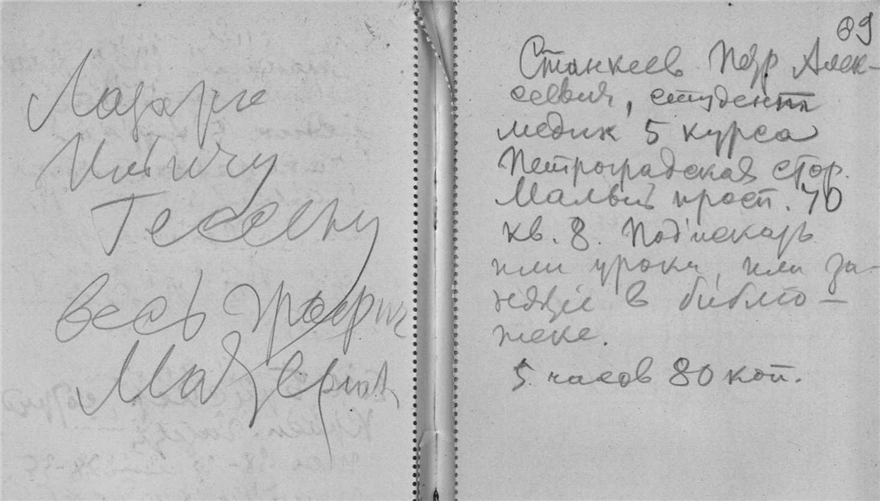 Лазарю
Ильичу
Гессену
весь график
Матерьял
89
Станкеев Петр Алек-
сеевич, студентъ
медик 5 курса
Петроградская стор.
Малый просп. 70
кв. 8. Подыскать
или уроки, или за-
нятие в библио-
теке.
5 часов 80 коп.